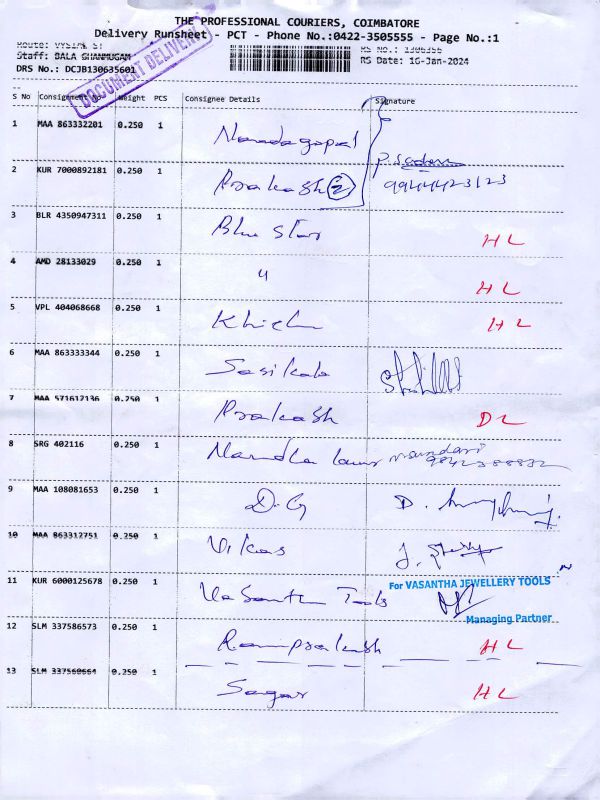 THE PROFESSIONAL COURIERS, COIMBATORE
Delivery Runsheet - PCT - Phone No.:0422-3505555 - Page No.:1
Route: VYSIAL ST RS No.: 1306356
Staff: BALA SHANMUGAM RS Date: 16-Jan-2024
DRS No.: DCJB130635601
DOCUMENT DELIVERY
S No Consignment No Weight PCS Consignee Details Signature
1 MAA 863332201 0.250 1 Nandagopal
2 KUR 7000892181 0.250 1 Prakash 2 9944423123
3 BLR 4350947311 0.250 1 Blue Star HL
4 AMD 28133029 0.250 1 " HL
5 VPL 404068668 0.250 1 HL
6 MAA 863333344 0.250 1 Sasikala
7 MAA 571612136 0.250 1 Prakash DL
8 SRG 402116 0.250 1
9 MAA 108081653 0.250 1 D.G D.
10 MAA 863312751 0.250 1 Vikas J.
11 KUR 6000125678 0.250 1 Vasantha Tools For VASANTHA JEWELLERY TOOLS
Managing Partner
12 SLM 337586573 0.250 1 Ramprakash HL
13 SLM 337560664 0.250 1 Sagar HL